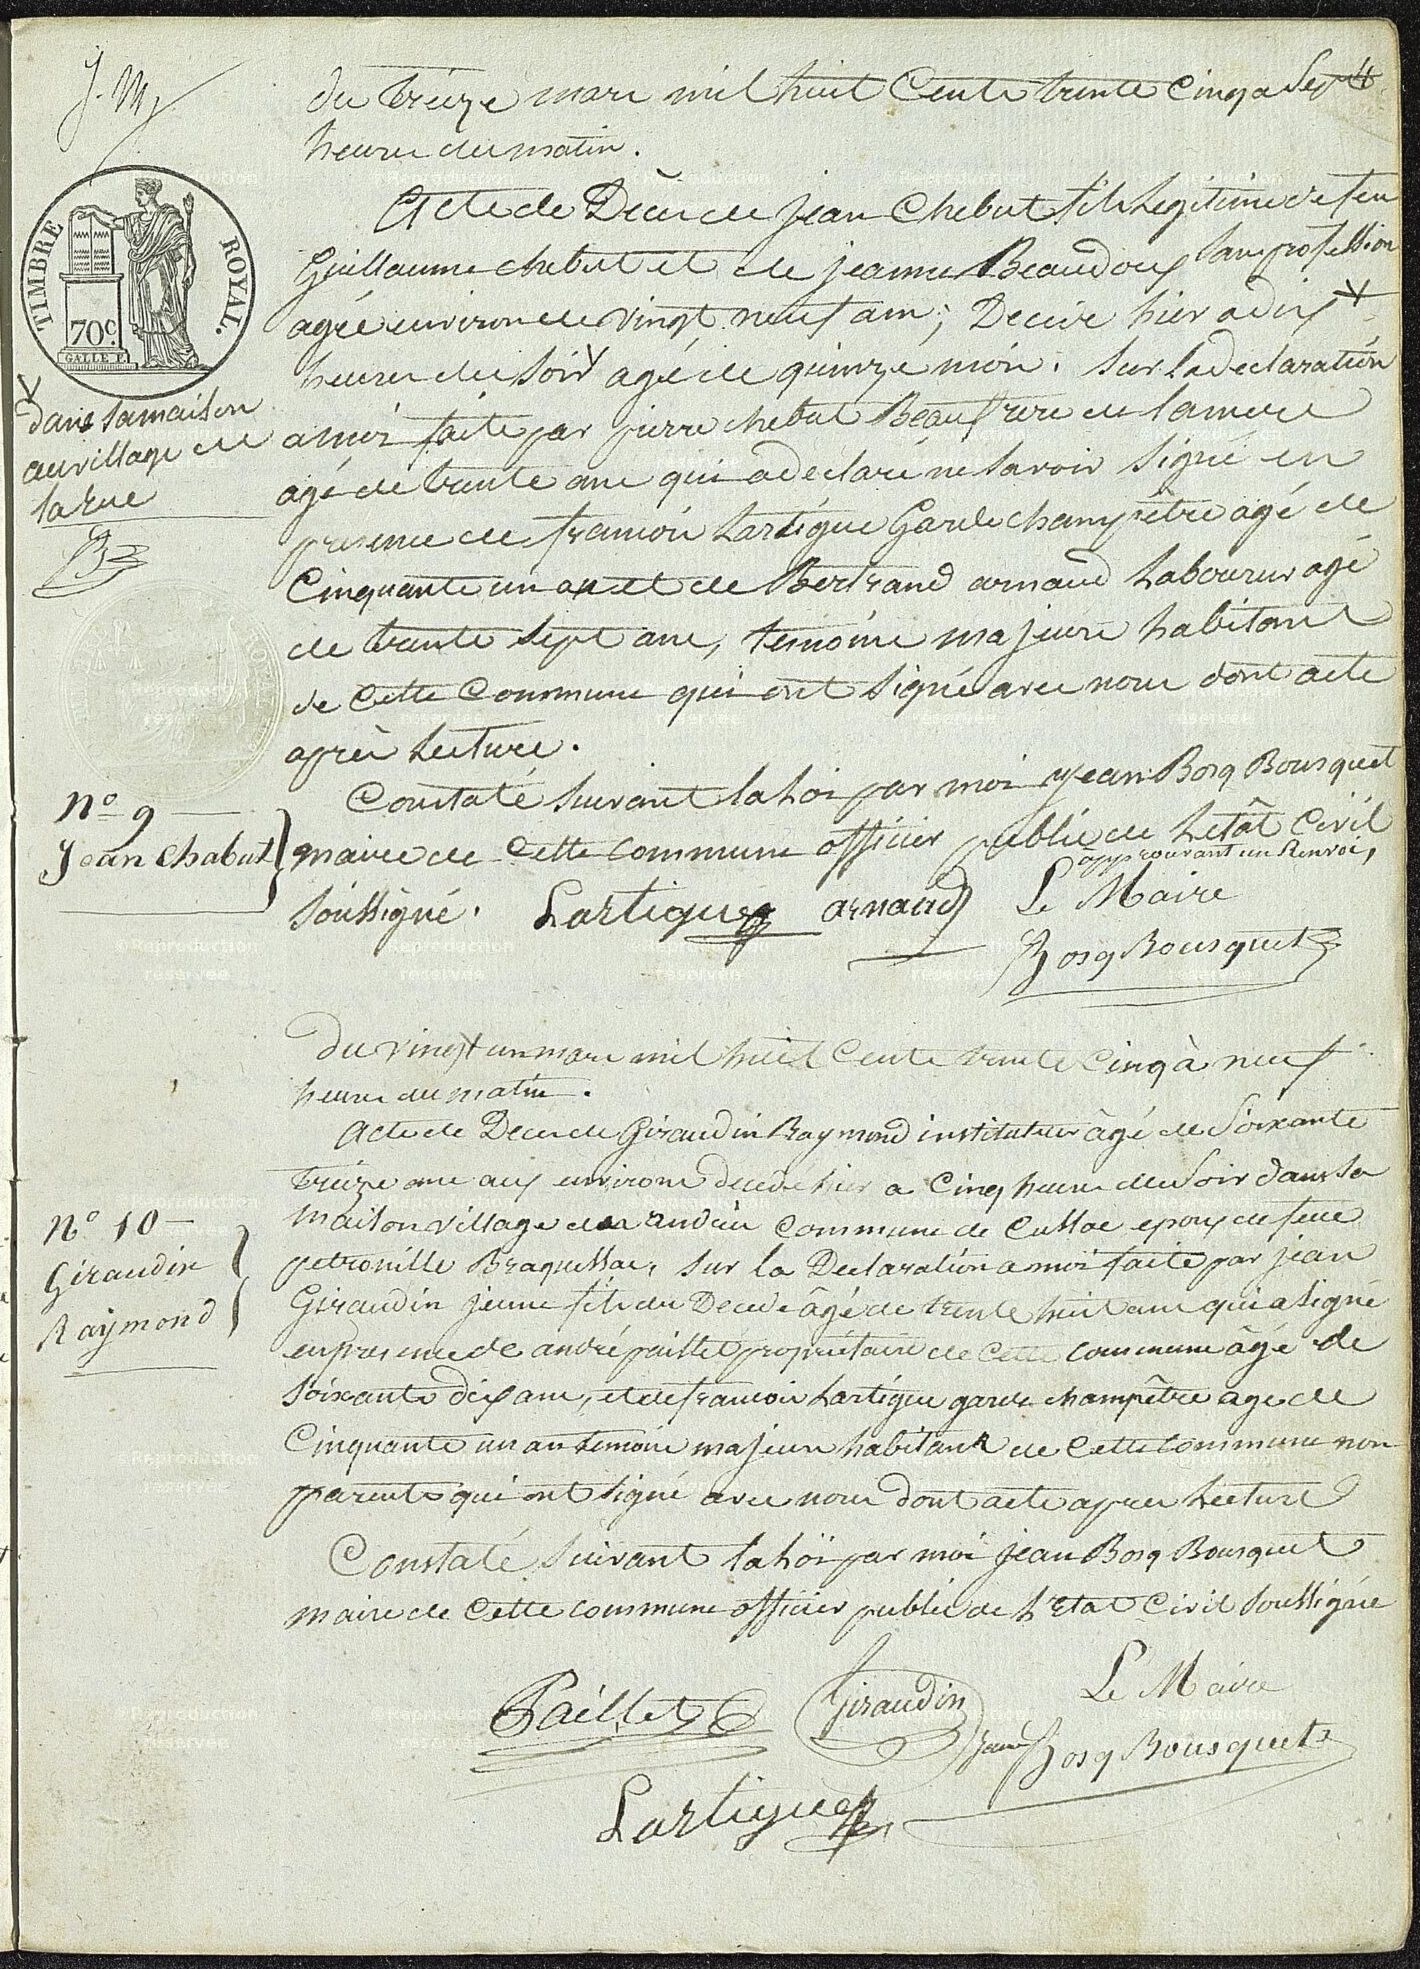 J. M
du treize mars mil huit Cents trente Cinq a Sept
heures du matin.
TIMBRE ROYAL.
70c.
GALLE F.
Acte de Décès de jean Chebut fils Legitime de feu
Guillaume chebut et de jeanne Beaudoux sans profession
agée environ de vingt neuf ans; Decede hier a dix
heures du soir agé de quinze mois. Sur la declaration
dans sa maison
au village de
la rue
a moi faite par pierre chebut Beaufrere de la mere
agé de trente ans qui a declaré ne savoir signé en
presence de francois Lartigue Garde champêtre agé de
Cinquante un an et de Bertrand arnaud Laboureur agé
de trente sept ans, temoins majeurs habitant
de Cette Commune qui ont signé avec nous dont acte
après Lecture.
Constaté suivant la Loi par moi jean Bosq Bousquet
N° 9
Jean Chabut
maire de Cette commune officier public de Letât Civil
approuvant un Renvoi,
soussigné. Lartigue arnaud Le Maire
Bosq Bousquet
du vingt un mars mil huit Cents trente Cinq à neuf
heures du matin.
Acte de Deces de Giraudin Raymond instituteur âgé de Soixante
treize ans aux environs decede hier a Cinq heures du Soir dans sa
N° 10
Giraudin
Raymond
maison village de commune de Cussac epoux de feue
petronille Braquessac, sur la Declaration a moi faite par jean
Giraudin jeune fils du Decede âgé de trente huit ans qui a signé
en presence de andré paillet propriétaire de Cette commune âgé de
Soixante dix ans, et de francois Lartigue garde champêtre age de
Cinquante un an temoins majeurs habitant de Cette Commune non
parents qui ont signé avec nous dont acte apres Lecture
Constaté Suivant la Loi par moi jean Bosq Bousquet
maire de Cette commune officier public de L'Etat Civil Soussigné
Le Maire
Paillet Giraudin jeune Bosq Bousquet
Lartigue